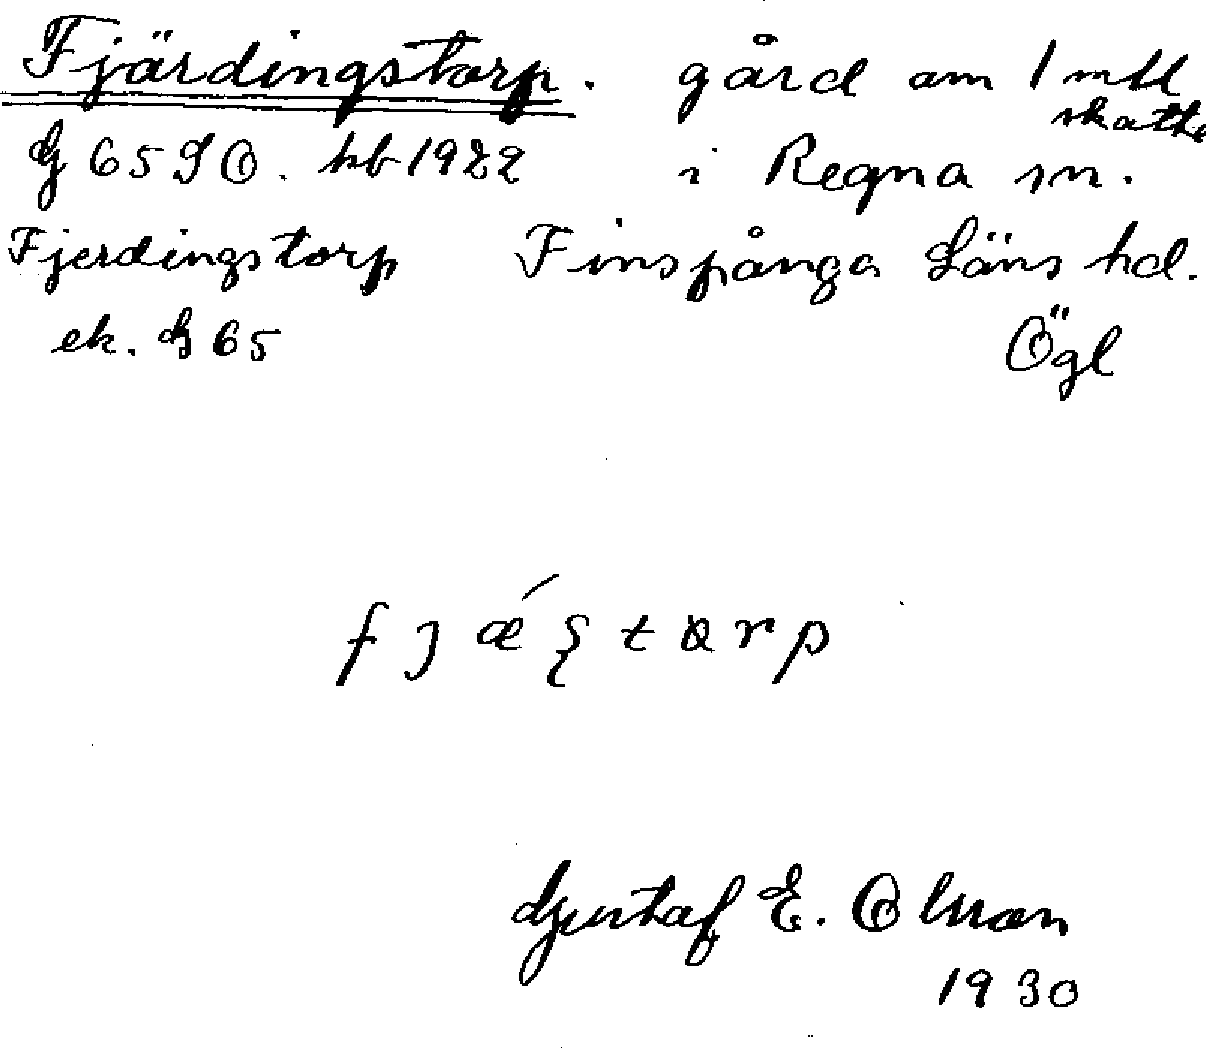 Fjärdingstorp. gård om 1 mtl
skatte
G 65 SO. hb 1922 i Regna sn.
Fjerdingstorp Finspånga Läns hd.
ek. G 65 Ögl
Gustaf E. Olson
1930